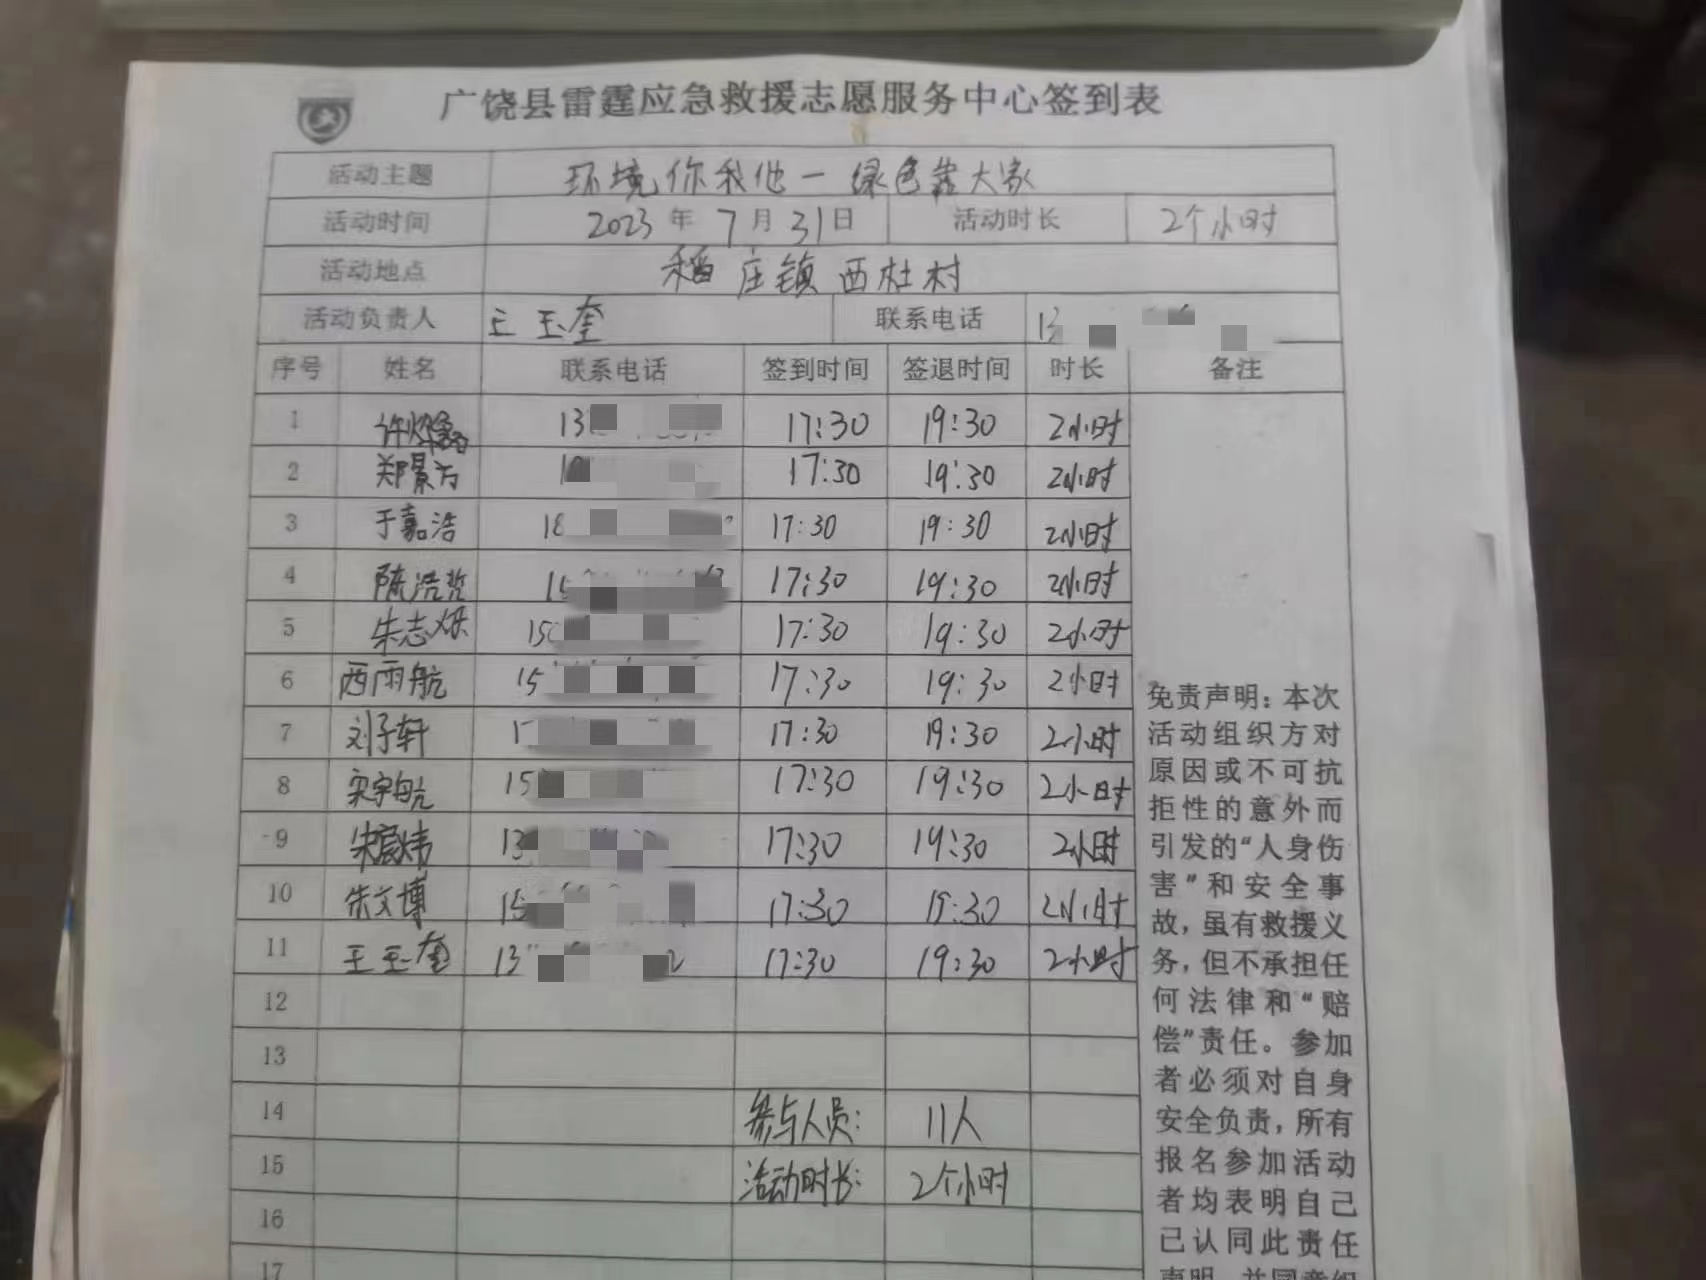 广饶县雷霆应急救援志愿服务中心签到表
活动主题 环境你我他一绿色靠大家
活动时间 2023年7月31日 活动时长 2个小时
活动地点 稻庄镇西杜村
活动负责人 王玉奎 联系电话 13
序号 姓名 联系电话 签到时间 签退时间 时长 备注
1 许 13 17:30 19:30 2小时
2 郑景方 17:30 19:30 2小时
3 于嘉浩 18 17:30 19:30 2小时
4 陈浩哲 15 17:30 19:30 2小时
5 朱志烁 150 17:30 19:30 2小时
6 西雨航 15 17:30 19:30 2小时
7 刘子轩 1 17:30 19:30 2小时
8 宋宇航 15 17:30 19:30 2小时
9 13 17:30 19:30 2小时
10 朱文博 15 17:30 19:30 2小时
11 王玉奎 13 2 17:30 19:30 2小时
12
13
14 参与人员: 11人
15 活动时长: 2个小时
16
17
免责声明:本次
活动组织方对
原因或不可抗
拒性的意外而
引发的“人身伤
害”和安全事
故,虽有救援义
务,但不承担任
何法律和“赔
偿”责任。参加
者必须对自身
安全负责,所有
报名参加活动
者均表明自己
已认同此责任